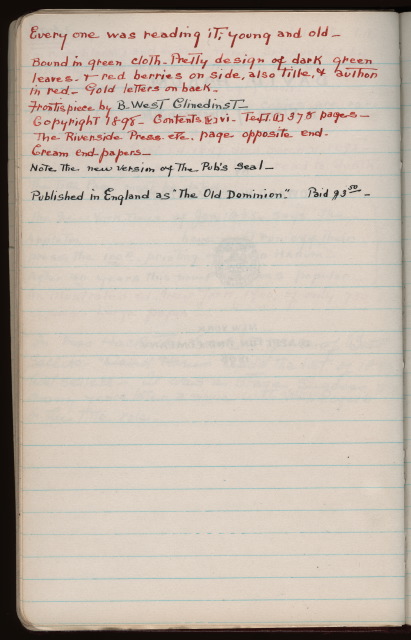 Every one was reading it; young and old—
Bound in green cloth. Pretty design of dark green
leaves. & red berries on side, also title, & author
in red. Gold letters on back.
Frontispiece by B. West Clinedinst—
Copyright 1898— Contents vi. Text (1) 378 pages—
The Riverside Press. etc. page opposite end.
Cream end-papers—
Note the new version of The Pub's seal—
Published in England as "The Old Dominion." Paid $3.50—